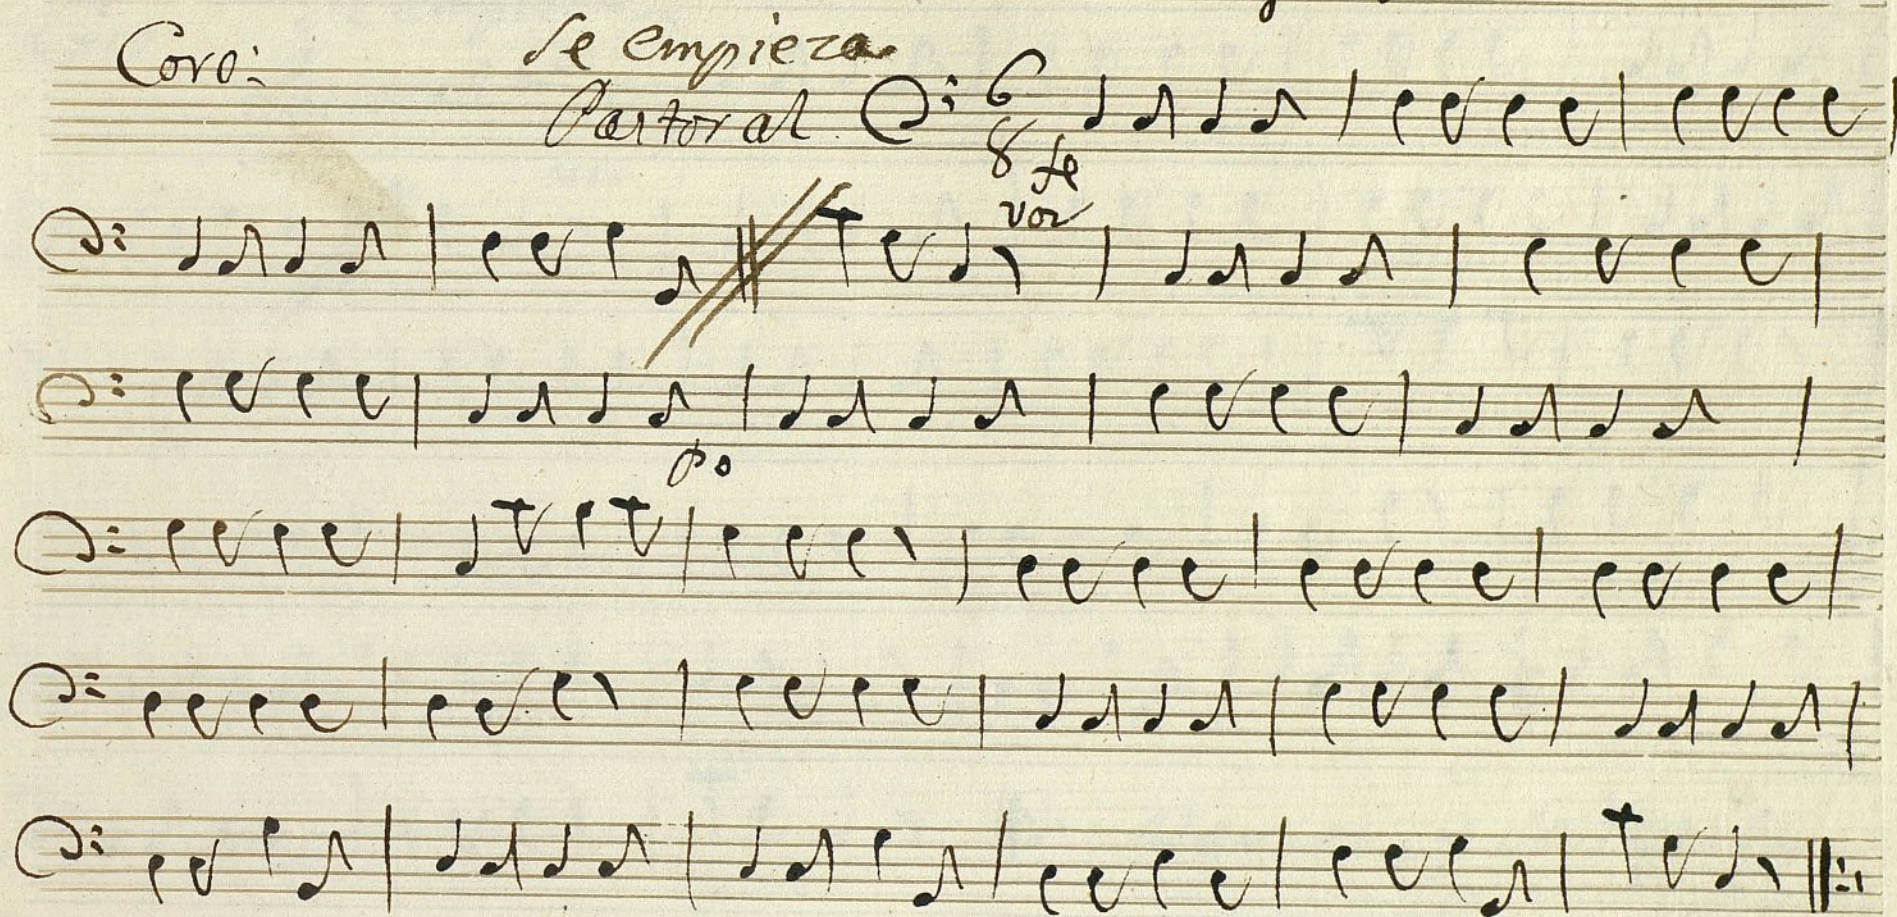 Coro:
Se empieza
Pastoral 6
8 fe
voz
po